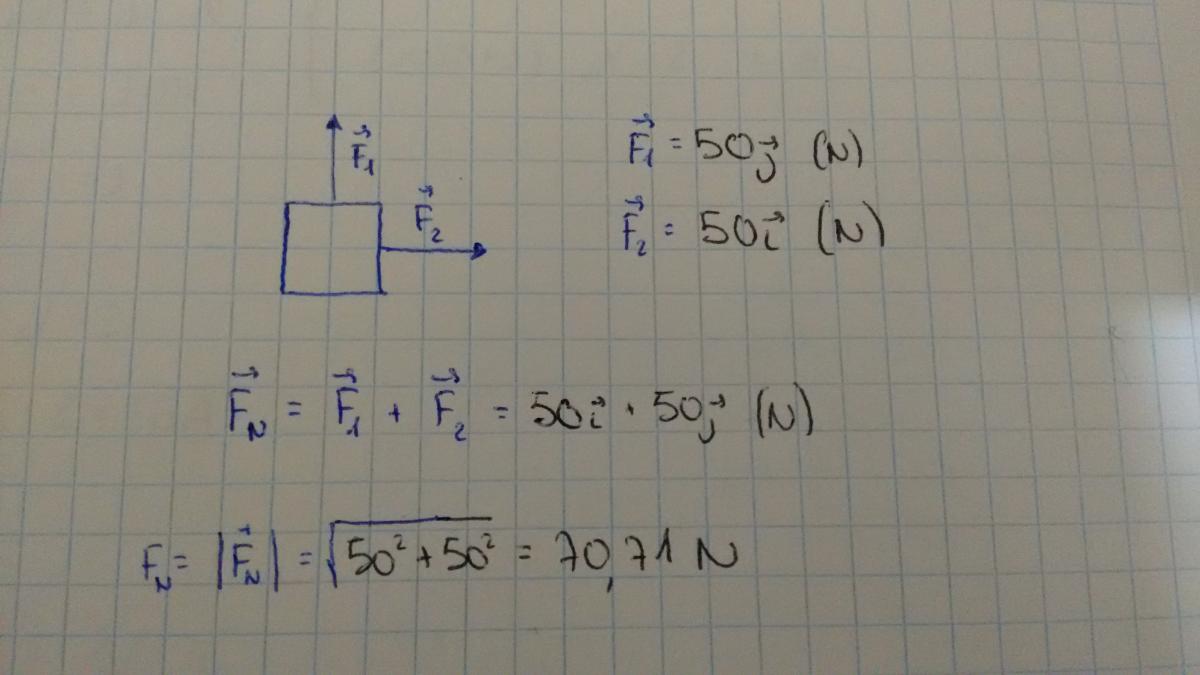 F⃗₁
F⃗₂
F⃗₁ = 50j⃗ (N)
F⃗₂ = 50i⃗ (N)
F⃗_N = F⃗₁ + F⃗₂ = 50i⃗ · 50j⃗ (N)
F_N = |F⃗_N| = √(50² + 50²) = 70,71 N